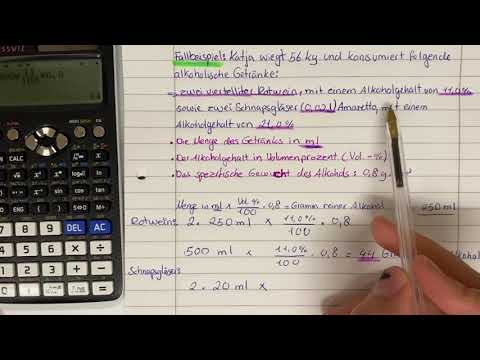 Fallbeispiel: Katja wiegt 56 kg und konsumiert folgende
alkoholische Getränke:
- zwei viertelliter Rotwein, mit einem Alkoholgehalt von 11,0%
sowie zwei Schnapsgläser (0,02 l) Amaretto, mit einem
Alkoholgehalt von 21,0%
• Die Menge des Getränks in ml
• Der Alkoholgehalt in Volumenprozent (Vol.-%)
• Das spezifische Gewicht des Alkohols: 0,8 g
Menge in ml × Vol.% / 100 · 0,8 = Gramm reiner Alkohol 250 ml
Rotwein: 2 · 250 ml × 11,0% / 100 · 0,8
500 ml × 11,0% / 100 · 0,8 = 44
Schnapsgläser:
2 · 20 ml ×
DEL AC